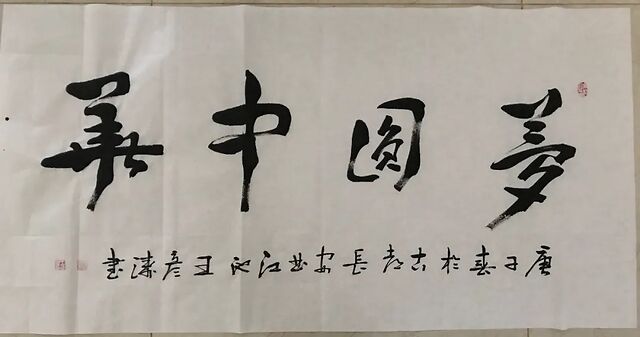 夢圓中華
庚子春於古都長安曲江池王彥濤書